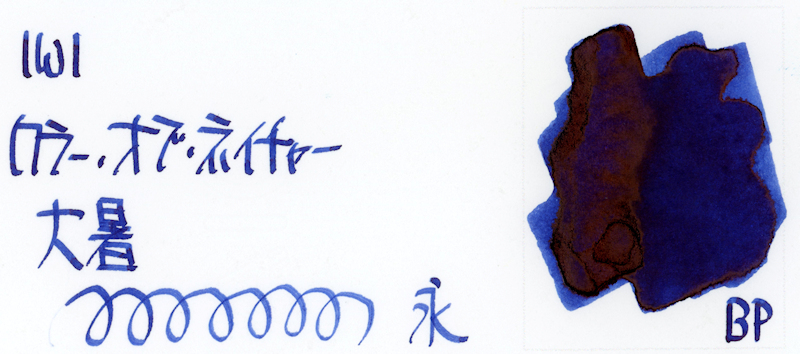 IWI
カラー・オブ・ネイチャー
大暑
永
BP